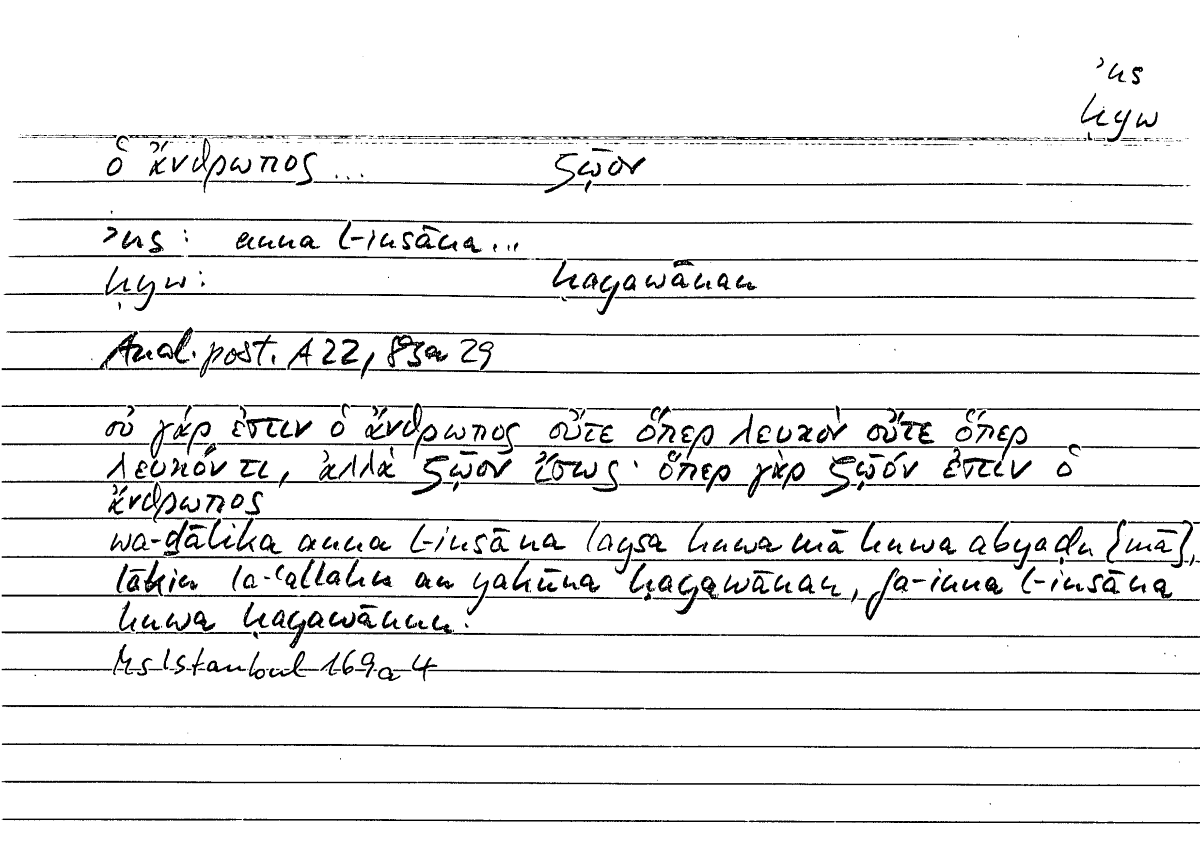 ʾns
ḥyw
ὁ ἄνθρωπος ... ζῷον
ʾns: anna l-insāna...
ḥyw: ḥayawānan
Anal. post. A 22, 83a 29
οὐ γάρ ἐστιν ὁ ἄνθρωπος οὔτε ὅπερ λευκὸν οὔτε ὅπερ
λευκόν τι, ἀλλὰ ζῷον ἴσως· ὅπερ γὰρ ζῷόν ἐστιν ὁ
ἄνθρωπος
wa-ḏālika anna l-insāna laysa huwa mā huwa abyaḍu {mā},
lākin la-ʿallahu an yakūna ḥayawānan, fa-inna l-insāna
huwa ḥayawānun.
Ms Istanbul 169a 4